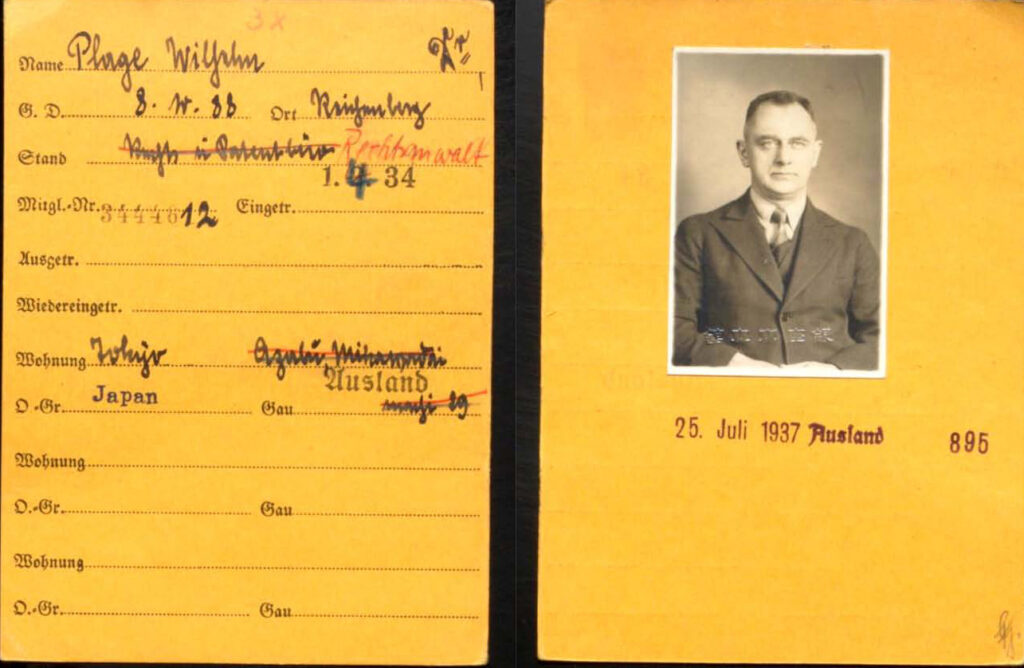 3x
Name Plage Wilhelm Dr
G. D. 8. IV. 88 Ort Reichenberg
Stand Rechts u Patentbüro Rechtsanwalt
1. 4 34
Mitgl.-Nr. 3444612 Eingetr.
Ausgetr.
Wiedereingetr.
Wohnung Tokyo Azabu Mikawadai
Ausland
O.-Gr. Japan Gau machi 29
Wohnung
O.-Gr. Gau
Wohnung
O.-Gr. Gau
25. Juli 1937 Ausland 895